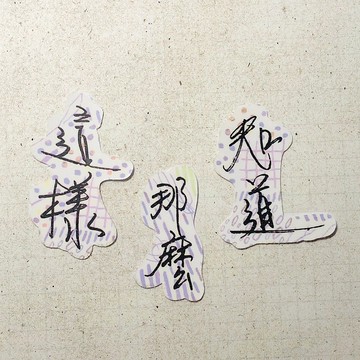 這樣
那麼
知道